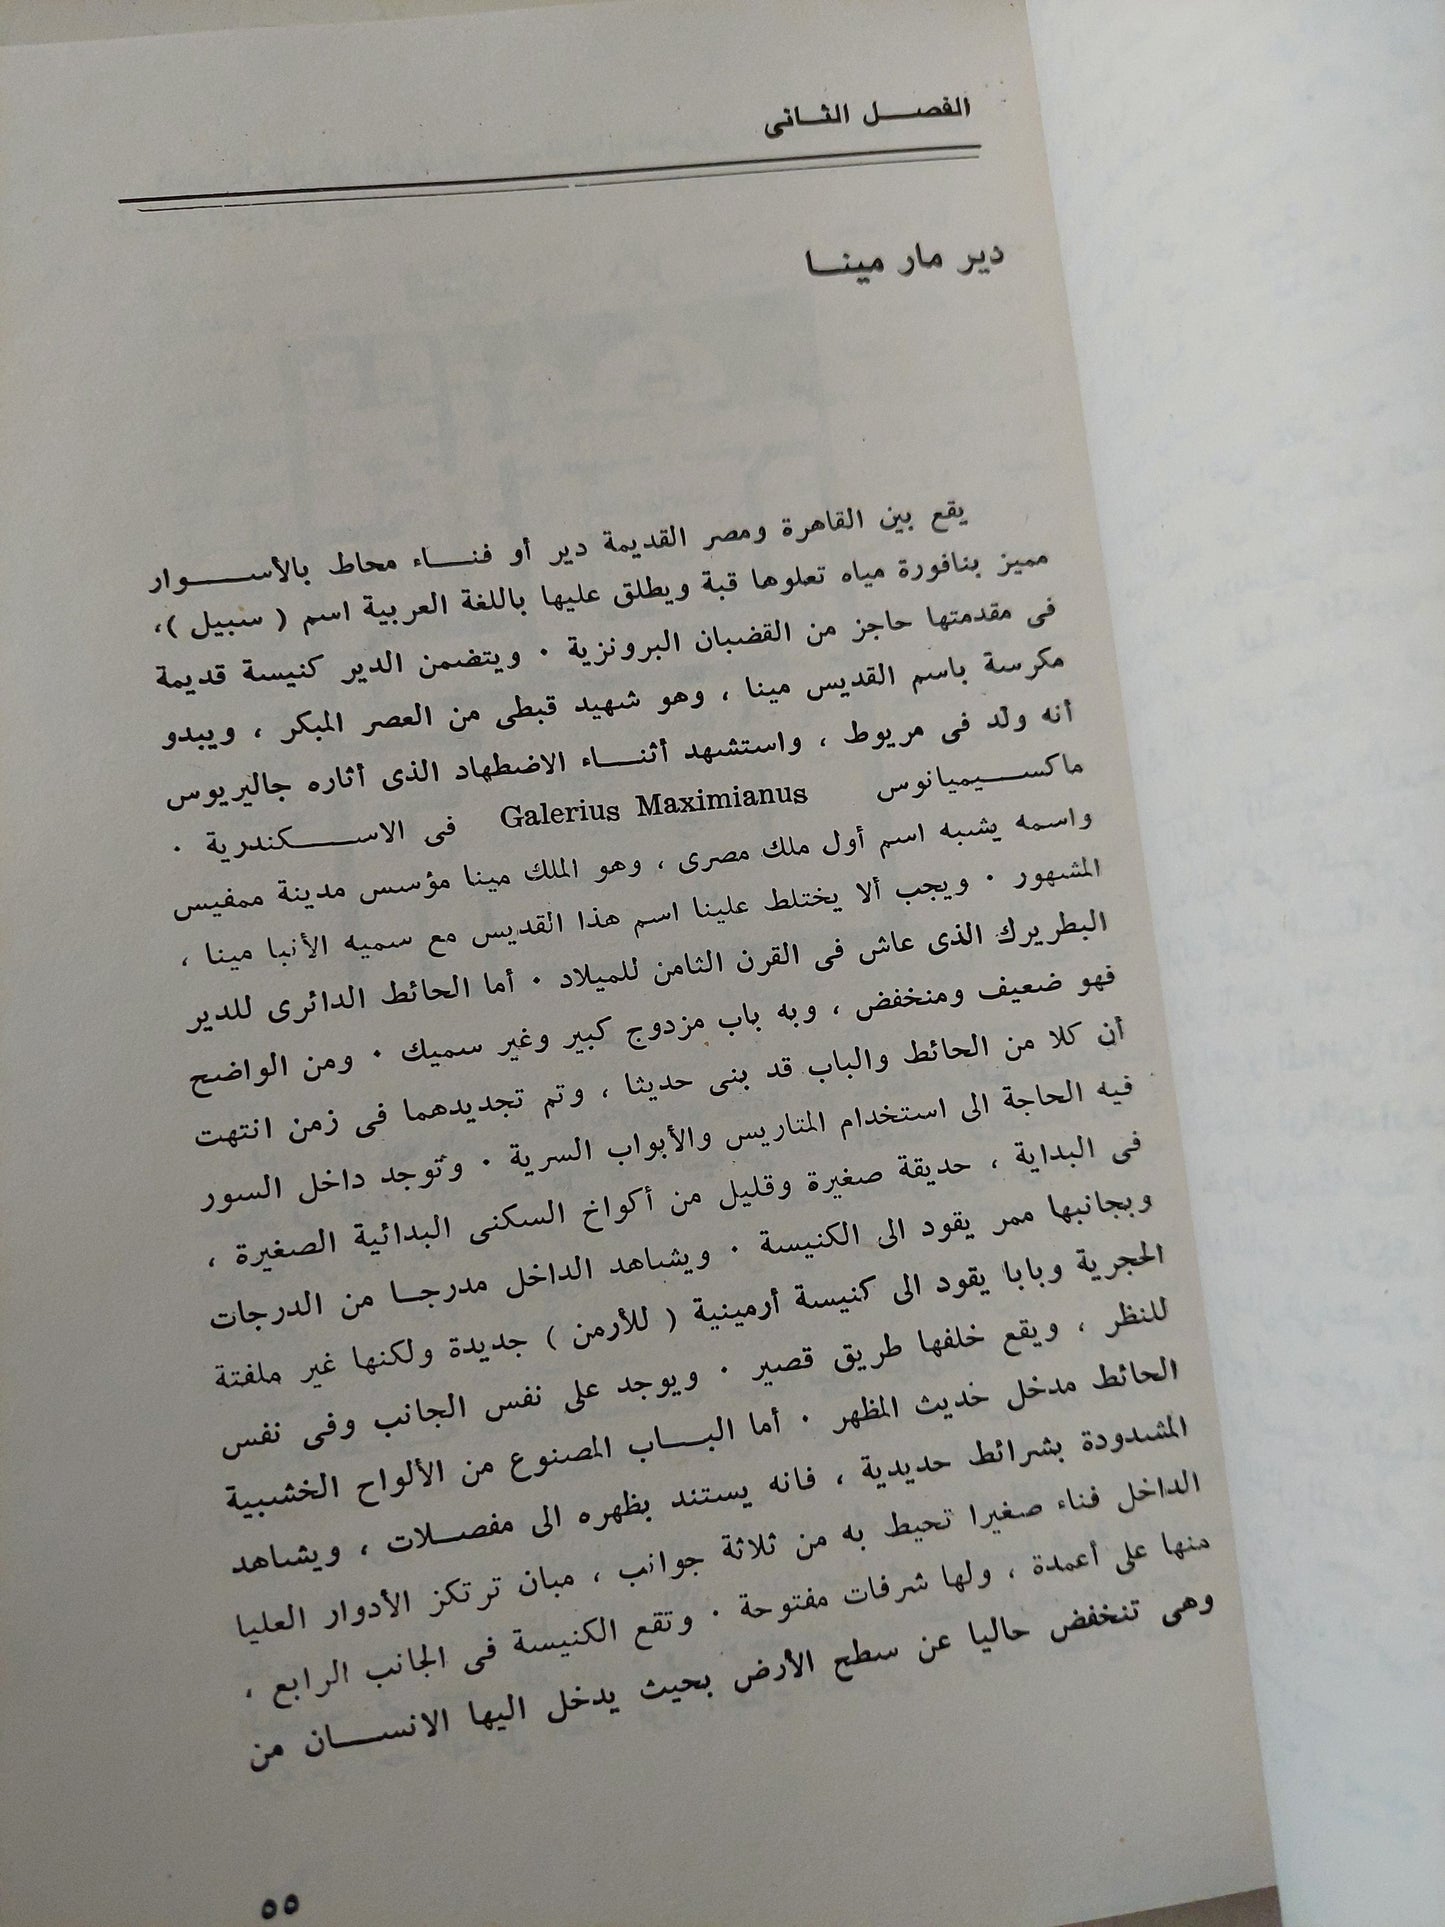 الفصــل الثـانى
دير مار مينــا
يقع بين القاهرة ومصر القديمة دير أو فنــاء محاط بالأســـوار
مميز بنافورة مياه تعلوها قبة ويطلق عليها باللغة العربية اسم ( سبيل )،
فى مقدمتها حاجز من القضبان البرونزية . ويتضمن الدير كنيسة قديمة
مكرسة باسم القديس مينا ، وهو شهيد قبطى من العصر المبكر ، ويبدو
أنه ولد فى مريوط ، واستشهد أثنــاء الاضطهاد الذى أثاره جاليريوس
ماكســيميانوس Galerius Maximianus فى الاســـكندرية .
واسمه يشبه اسم أول ملك مصرى ، وهو الملك مينا مؤسس مدينة ممفيس
المشهور . ويجب ألا يختلط علينا اسم هذا القديس مع سميه الأنبا مينا ،
البطريرك الذى عاش فى القرن الثامن للميلاد . أما الحائط الدائرى للدير
فهو ضعيف ومنخفض ، وبه باب مزدوج كبير وغير سميك . ومن الواضح
أن كلا من الحائط والباب قد بنى حديثا ، وتم تجديدهما فى زمن انتهت
فيه الحاجة الى استخدام المتاريس والأبواب السرية . وتوجد داخل السور
فى البداية ، حديقة صغيرة وقليل من أكواخ السكنى البدائية الصغيرة ،
وبجانبها ممر يقود الى الكنيسة . ويشاهد الداخل مدرجــا من الدرجات
الحجرية وبابا يقود الى كنيسة أرمينية ( للأرمن ) جديدة ولكنها غير ملفتة
للنظر ، ويقع خلفها طريق قصير . ويوجد على نفس الجانب وفى نفس
الحائط مدخل حديث المظهر . أما البــاب المصنوع من الألواح الخشبية
المشدودة بشرائط حديدية ، فانه يستند بظهره الى مفصــلات ، ويشاهد
الداخل فناء صغيرا تحيط به من ثلاثة جوانب ، مبان ترتكز الأدوار العليا
منها على أعمدة ، ولها شرفات مفتوحة . وتقع الكنيسة فى الجانب الرابع ،
وهى تنخفض حاليا عن سطح الأرض بحيث يدخل اليها الانســان من
٥٥